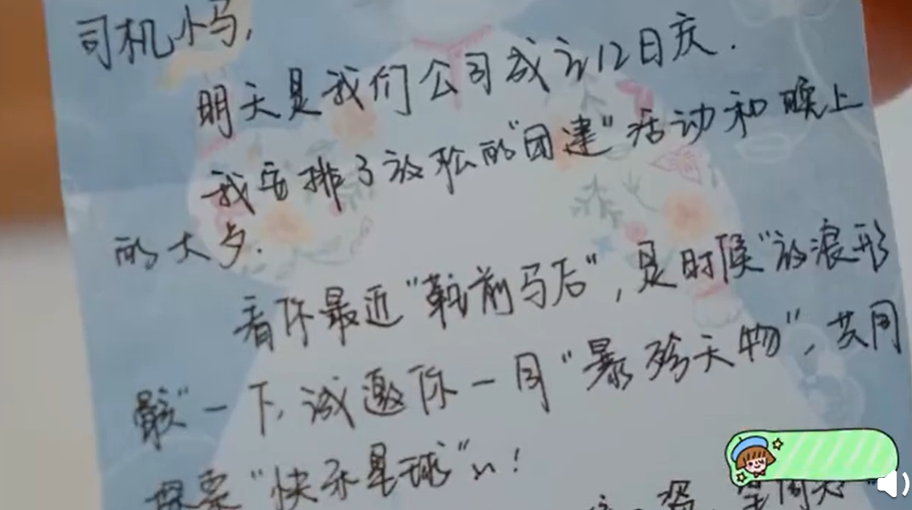 司机小马,
明天是我们公司成立12日庆.
我安排了放松的"团建"活动和晚上
的大夕.
看你最近"鞍前马后",是时候"放浪形
骸"一下,诚邀你一同"暴殄天物",共同
探索"快乐星球"!